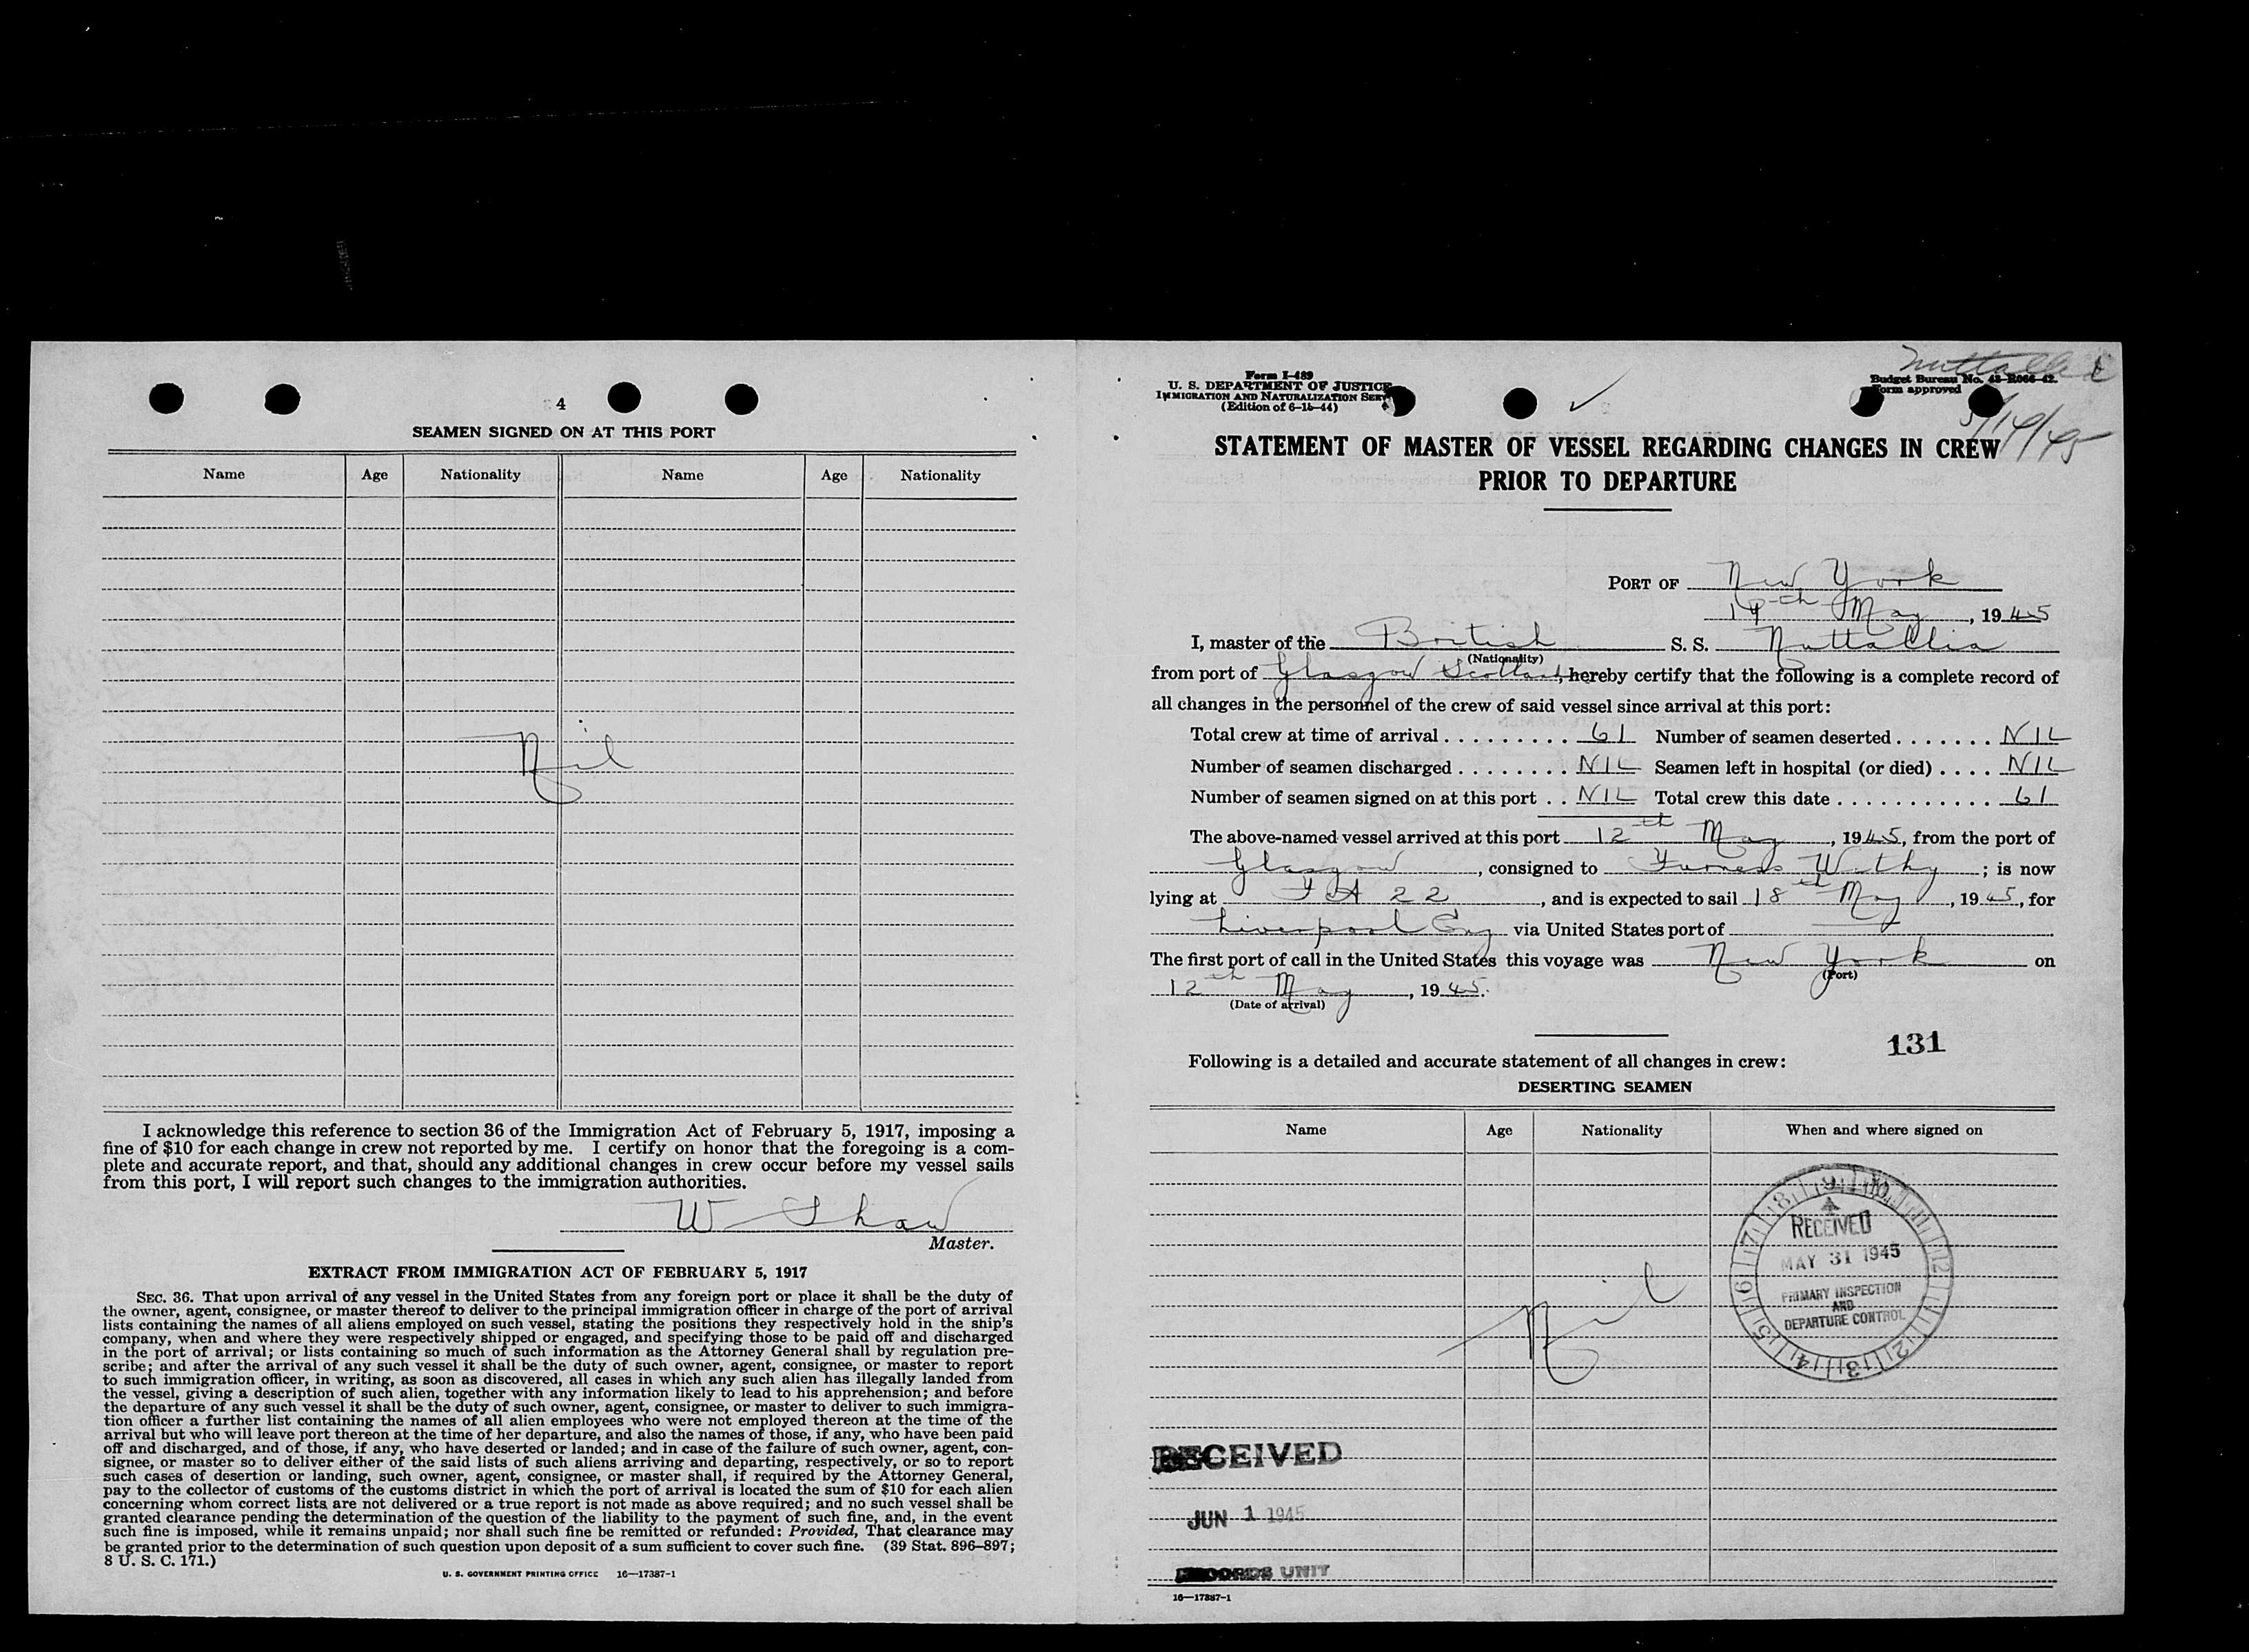 4
SEAMEN SIGNED ON AT THIS PORT
Name Age Nationality Name Age Nationality
Nil
I acknowledge this reference to section 36 of the Immigration Act of February 5, 1917, imposing a
fine of $10 for each change in crew not reported by me. I certify on honor that the foregoing is a com-
plete and accurate report, and that, should any additional changes in crew occur before my vessel sails
from this port, I will report such changes to the immigration authorities.
W Shaw
Master.
EXTRACT FROM IMMIGRATION ACT OF FEBRUARY 5, 1917
SEC. 36. That upon arrival of any vessel in the United States from any foreign port or place it shall be the duty of
the owner, agent, consignee, or master thereof to deliver to the principal immigration officer in charge of the port of arrival
lists containing the names of all aliens employed on such vessel, stating the positions they respectively hold in the ship's
company, when and where they were respectively shipped or engaged, and specifying those to be paid off and discharged
in the port of arrival; or lists containing so much of such information as the Attorney General shall by regulation pre-
scribe; and after the arrival of any such vessel it shall be the duty of such owner, agent, consignee, or master to report
to such immigration officer, in writing, as soon as discovered, all cases in which any such alien has illegally landed from
the vessel, giving a description of such alien, together with any information likely to lead to his apprehension; and before
the departure of any such vessel it shall be the duty of such owner, agent, consignee, or master to deliver to such immigra-
tion officer a further list containing the names of all alien employees who were not employed thereon at the time of the
arrival but who will leave port thereon at the time of her departure, and also the names of those, if any, who have been paid
off and discharged, and of those, if any, who have deserted or landed; and in case of the failure of such owner, agent, con-
signee, or master so to deliver either of the said lists of such aliens arriving and departing, respectively, or so to report
such cases of desertion or landing, such owner, agent, consignee, or master shall, if required by the Attorney General,
pay to the collector of customs of the customs district in which the port of arrival is located the sum of $10 for each alien
concerning whom correct lists are not delivered or a true report is not made as above required; and no such vessel shall be
granted clearance pending the determination of the question of the liability to the payment of such fine, and, in the event
such fine is imposed, while it remains unpaid; nor shall such fine be remitted or refunded: Provided, That clearance may
be granted prior to the determination of such question upon deposit of a sum sufficient to cover such fine. (39 Stat. 896–897;
8 U. S. C. 171.)
U. S. GOVERNMENT PRINTING OFFICE 16—17387-1
Form I-489
U. S. DEPARTMENT OF JUSTICE
IMMIGRATION AND NATURALIZATION SERV
(Edition of 6-15-44)
Nuttallia
Budget Bureau No. 43-R066-42.
Form approved
5/14/45
STATEMENT OF MASTER OF VESSEL REGARDING CHANGES IN CREW
PRIOR TO DEPARTURE
PORT OF New York
14th May, 1945
I, master of the British S. S. Nuttallia
(Nationality)
from port of Glasgow Scotland, hereby certify that the following is a complete record of
all changes in the personnel of the crew of said vessel since arrival at this port:
Total crew at time of arrival . . . . . . . . . 61 Number of seamen deserted . . . . . . . NIL
Number of seamen discharged . . . . . . . . NIL Seamen left in hospital (or died) . . . . NIL
Number of seamen signed on at this port . . NIL Total crew this date . . . . . . . . . . . . 61
The above-named vessel arrived at this port 12th May, 1945, from the port of
Glasgow, consigned to Furness Withy; is now
lying at 22, and is expected to sail 18th May, 1945, for
Liverpool Eng via United States port of —
The first port of call in the United States this voyage was New York on
(Port)
12th May, 1945.
(Date of arrival)
131
Following is a detailed and accurate statement of all changes in crew:
DESERTING SEAMEN
Name Age Nationality When and where signed on
Nil
RECEIVED
MAY 31 1945
PRIMARY INSPECTION
AND
DEPARTURE CONTROL
RECEIVED
JUN 1 1945
RECORDS UNIT
16—17387-1